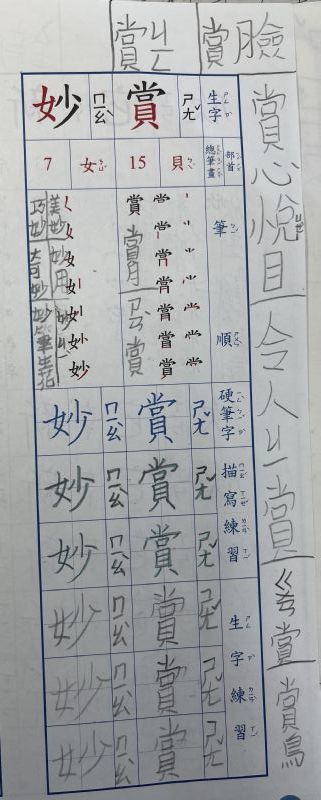 賞臉
賞ㄐㄧㄥ
賞心悅ㄩㄝˋ目
令人ㄐㄧㄥ賞
ㄍㄨㄢ賞
賞鳥
生字
部首 總筆畫
筆順
硬筆字描寫練習
生字練習
賞 ㄕㄤˇ
貝 15
賞月
ㄒㄧㄣ賞
賞 ㄕㄤˇ
賞 ㄕㄤˇ
賞 ㄕㄤˇ
賞 ㄕㄤˇ
賞 ㄕㄤˇ
賞 ㄕㄤˇ
妙 ㄇㄧㄠˋ
女 7
美妙
巧妙
奇妙
妙筆生花
妙 ㄇㄧㄠˋ
妙 ㄇㄧㄠˋ
妙 ㄇㄧㄠˋ
妙 ㄇㄧㄠˋ
妙 ㄇㄧㄠˋ
妙 ㄇㄧㄠˋ